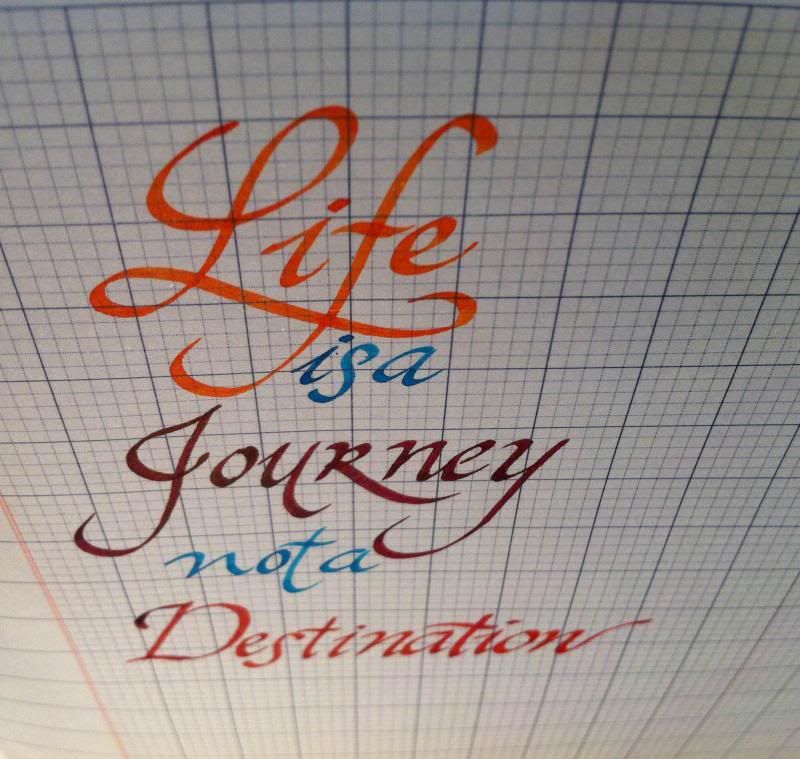 Life
is a
Journey
not a
Destination